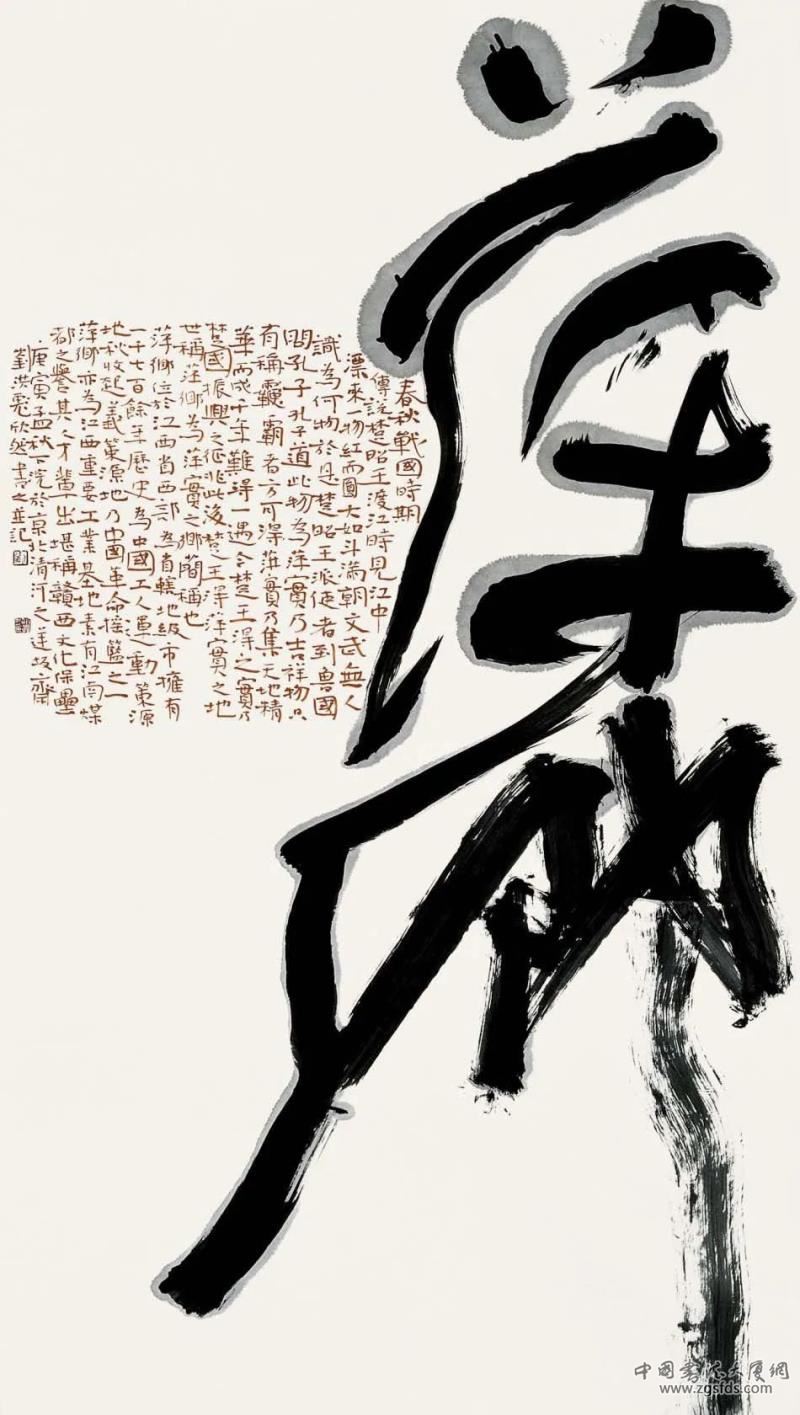 春秋戰國時期
傳說楚昭王渡江時見江中
漂來一物紅而圓大如斗滿朝文武無人
識為何物於是楚昭王派使者到魯國
問孔子孔子道此物為萍實乃吉祥物只
有稱霸者方可得萍實乃集天地精
華而成千年難得一遇今楚王得之實乃
楚國振興之征兆此後楚王得萍實之地
世稱萍鄉為萍實之鄉簡稱也
萍鄉位於江西省西部為省轄地級市擁有
一千七百餘年歷史為中國工人運動策源
地秋收起義策源地乃中國革命搖籃之一
萍鄉亦為江西重要工業基地素有江南煤
都之譽其人才輩出堪稱贛西文化保壘
庚寅孟秋下浣於京北清河之齋
劉洪彪欣然書之並記
中國書法大廈網
www.zgsfds.com